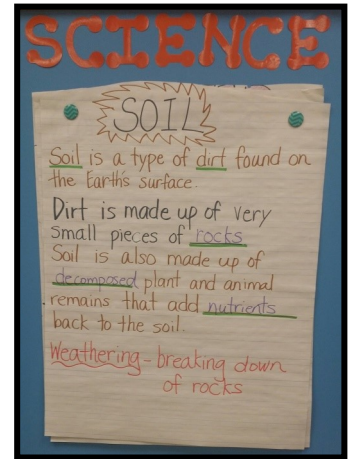 SCIENCE
SOIL
Soil is a type of dirt found on
the Earth's surface.
Dirt is made up of very
small pieces of rocks
Soil is also made up of
decomposed plant and animal
remains that add nutrients
back to the soil.
Weathering - breaking down
of rocks